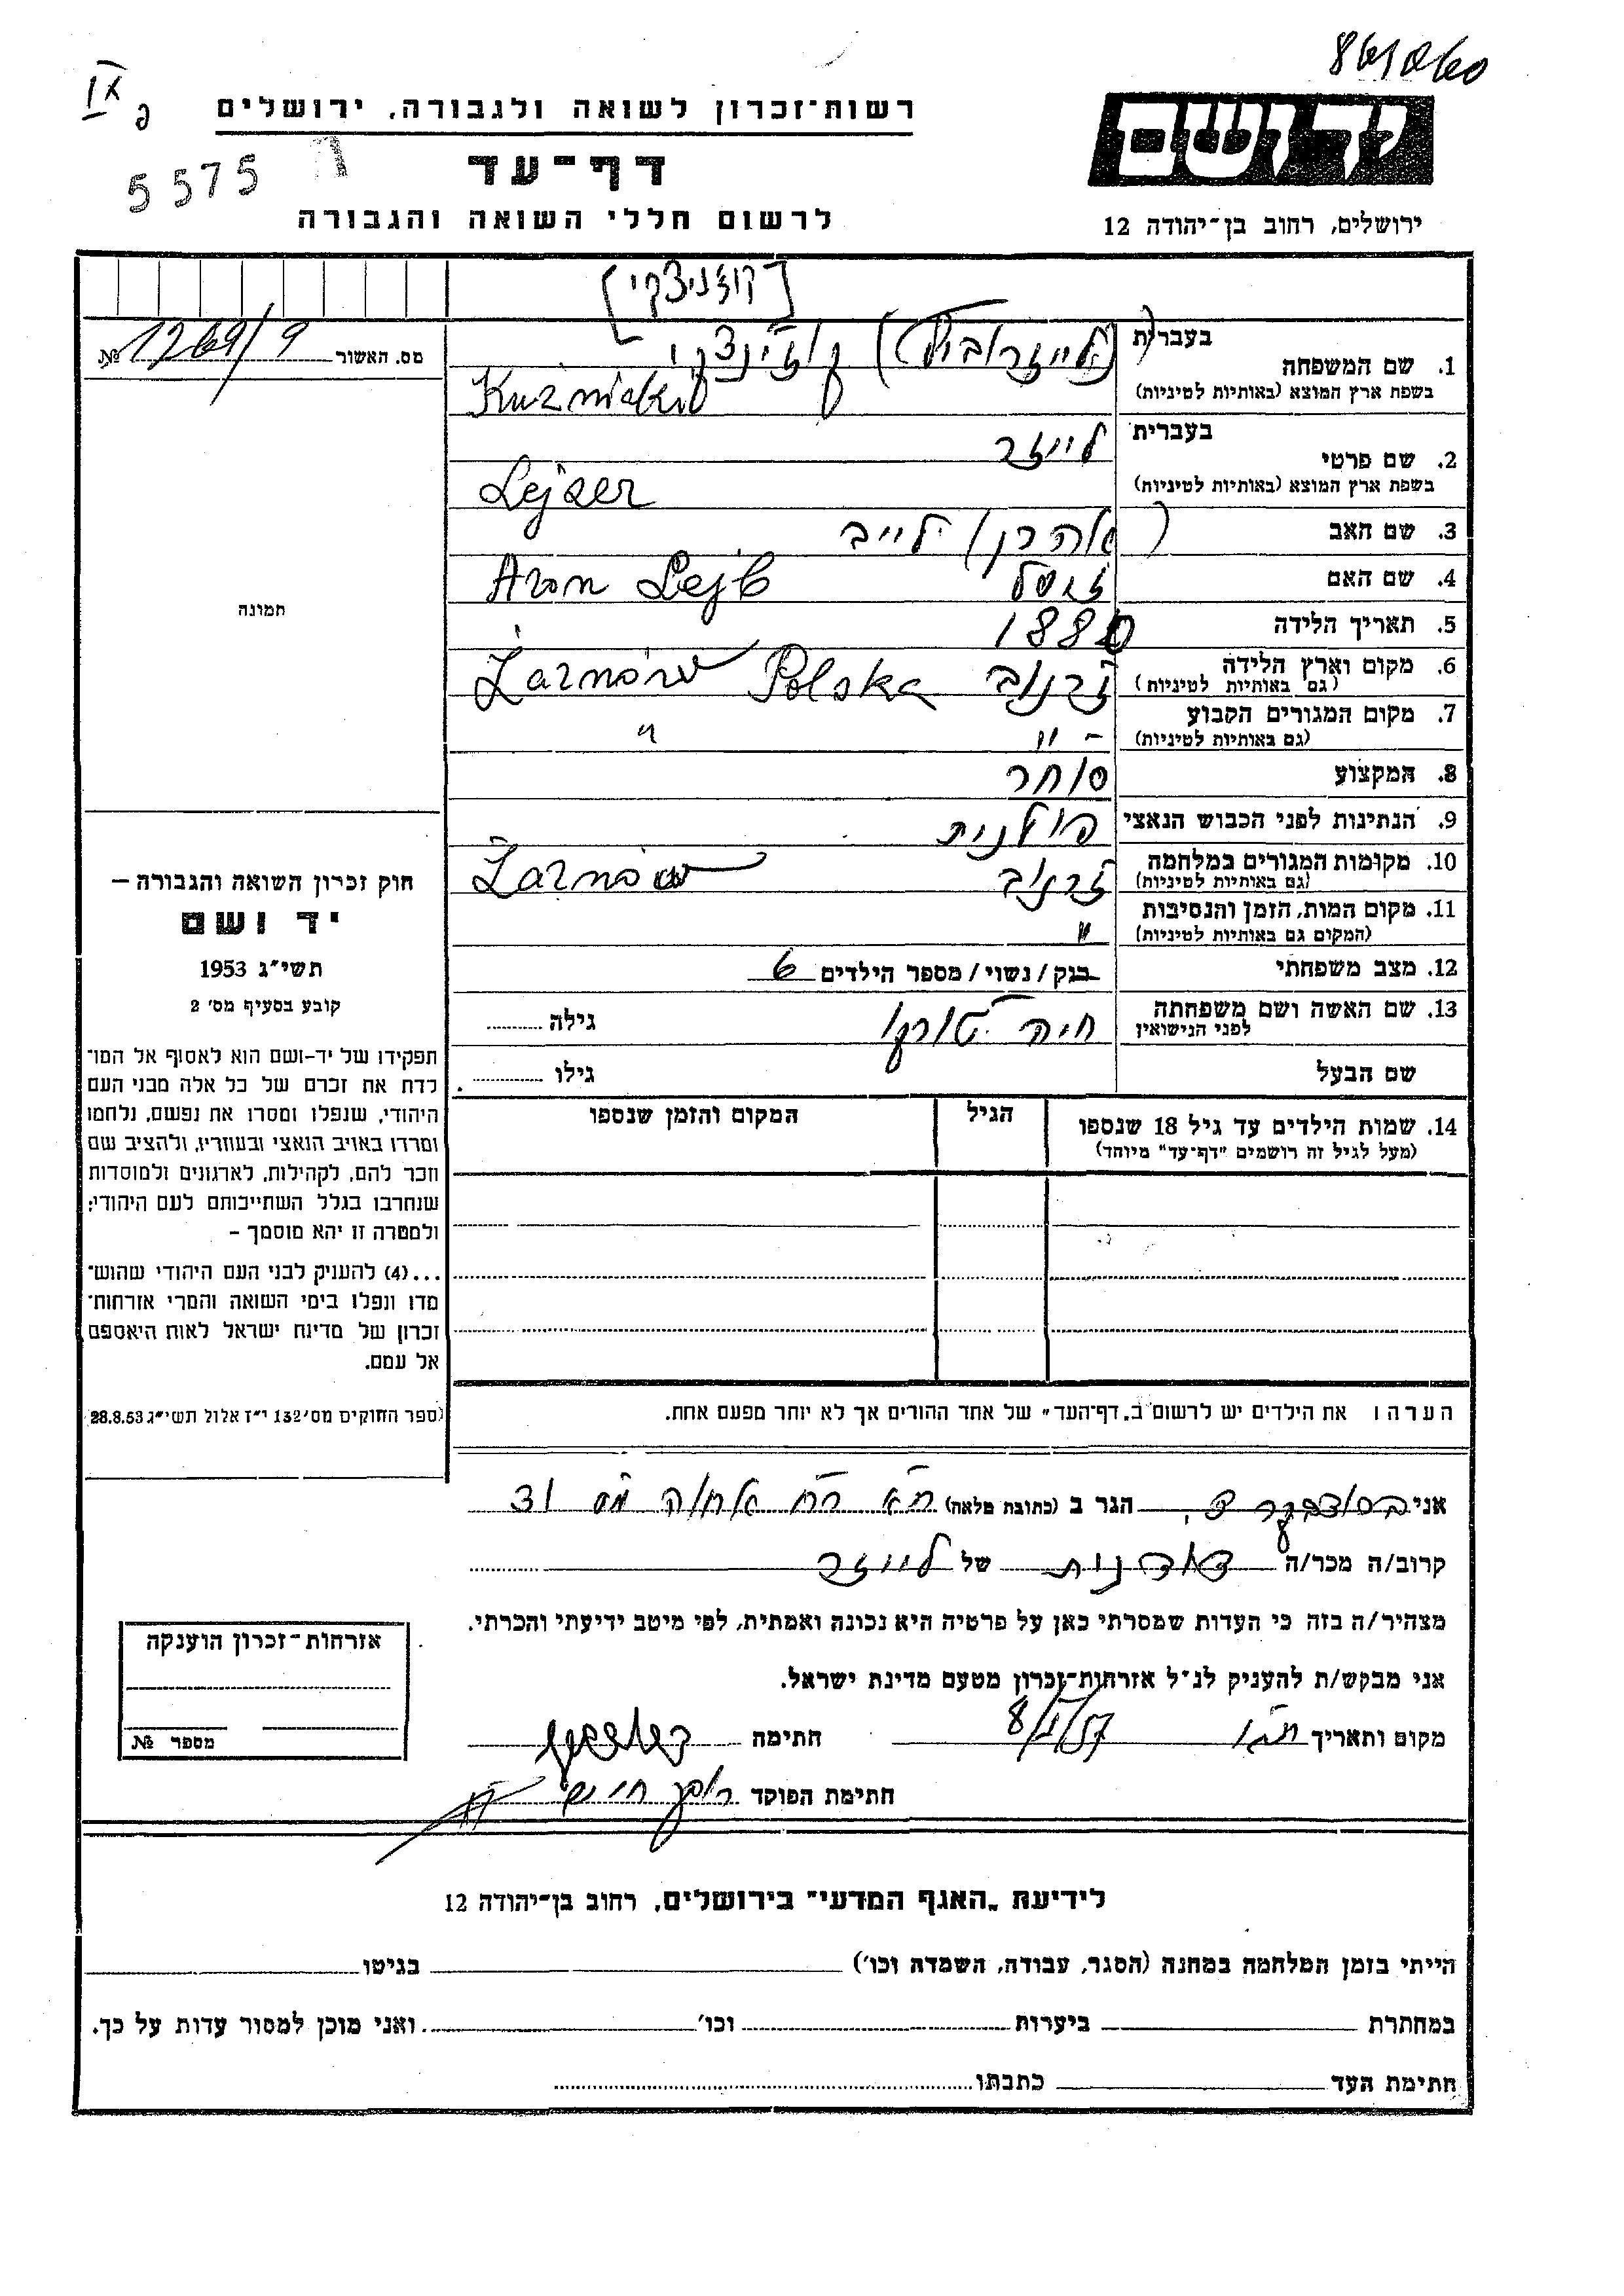 רשות־זכרון לשואה ולגבורה, ירושלים
דף־עד
לרשום חללי השואה והגבורה
5575
ידושם
ירושלים, רחוב בן־יהודה 12
[קוזניצקי]
מס. האשור 1269/9 №
1. שם המשפחה בעברית (לייזרוביץ)
בשפת ארץ המוצא (באותיות לטיניות)
2. שם פרטי בעברית לייזר
בשפת ארץ המוצא (באותיות לטיניות) Lejzer
3. שם האב (אהרן) לייב
4. שם האם Aron Lejb
5. תאריך הלידה 1880
6. מקום וארץ הלידה זרנוב Polska Żarnów
(גם באותיות לטיניות)
7. מקום המגורים הקבוע
(גם באותיות לטיניות) - " "
8. המקצוע סוחר
9. הנתינות לפני הכבוש הנאצי פולנית
10. מקומות המגורים במלחמה זרנוב Żarnów
(גם באותיות לטיניות)
11. מקום המות, הזמן והנסיבות
(המקום גם באותיות לטיניות) "
12. מצב משפחתי בנק/נשוי/מספר הילדים 6
13. שם האשה ושם משפחתה חיה גילה
לפני הנישואין
שם הבעל גילו
14. שמות הילדים עד גיל 18 שנספו הגיל המקום והזמן שנספו
(מעל לגיל זה רושמים "דף־עד" מיוחד)
הערה: את הילדים יש לרשום ב"דף־העד" של אחד ההורים אך לא יותר מפעם אחת.
תמונה
חוק זכרון השואה והגבורה –
יד ושם
תשי"ג 1953
קובע בסעיף מס' 2
תפקידו של יד-ושם הוא לאסוף אל המו־
לדת את זכרם של כל אלה מבני העם
היהודי, שנפלו ומסרו את נפשם, נלחמו
ומרדו באויב הנאצי ובעוזריו, ולהציב שם
וזכר להם, לקהילות, לארגונים ולמוסדות
שנחרבו בגלל השתייכותם לעם היהודי;
ולמטרה זו יהא מוסמך –
...(4) להעניק לבני העם היהודי שהוש־
מדו ונפלו בימי השואה והמרי אזרחות־
זכרון של מדינת ישראל לאות היאספם
אל עמם.
(ספר החוקים מס' 132 י"ז אלול תשי"ג 28.8.53
אני הגר ב (כתובת מלאה) ת"א רח
קרוב/ה מכר/ה של לייזר
מצהיר/ה בזה כי העדות שמסרתי כאן על פרטיה היא נכונה ואמתית, לפי מיטב ידיעתי והכרתי.
אני מבקש/ת להעניק לנ"ל אזרחות־זכרון מטעם מדינת ישראל.
מקום ותאריך חתימה
חתימת הפוקד
אזרחות־זכרון הוענקה
מספר №
לידיעת "האגף המדעי" בירושלים, רחוב בן־יהודה 12
הייתי בזמן המלחמה במחנה (הסגר, עבודה, השמדה וכו') בגיטו
במחתרת ביערות וכו' ואני מוכן למסור עדות על כך.
חתימת העד כתבתו